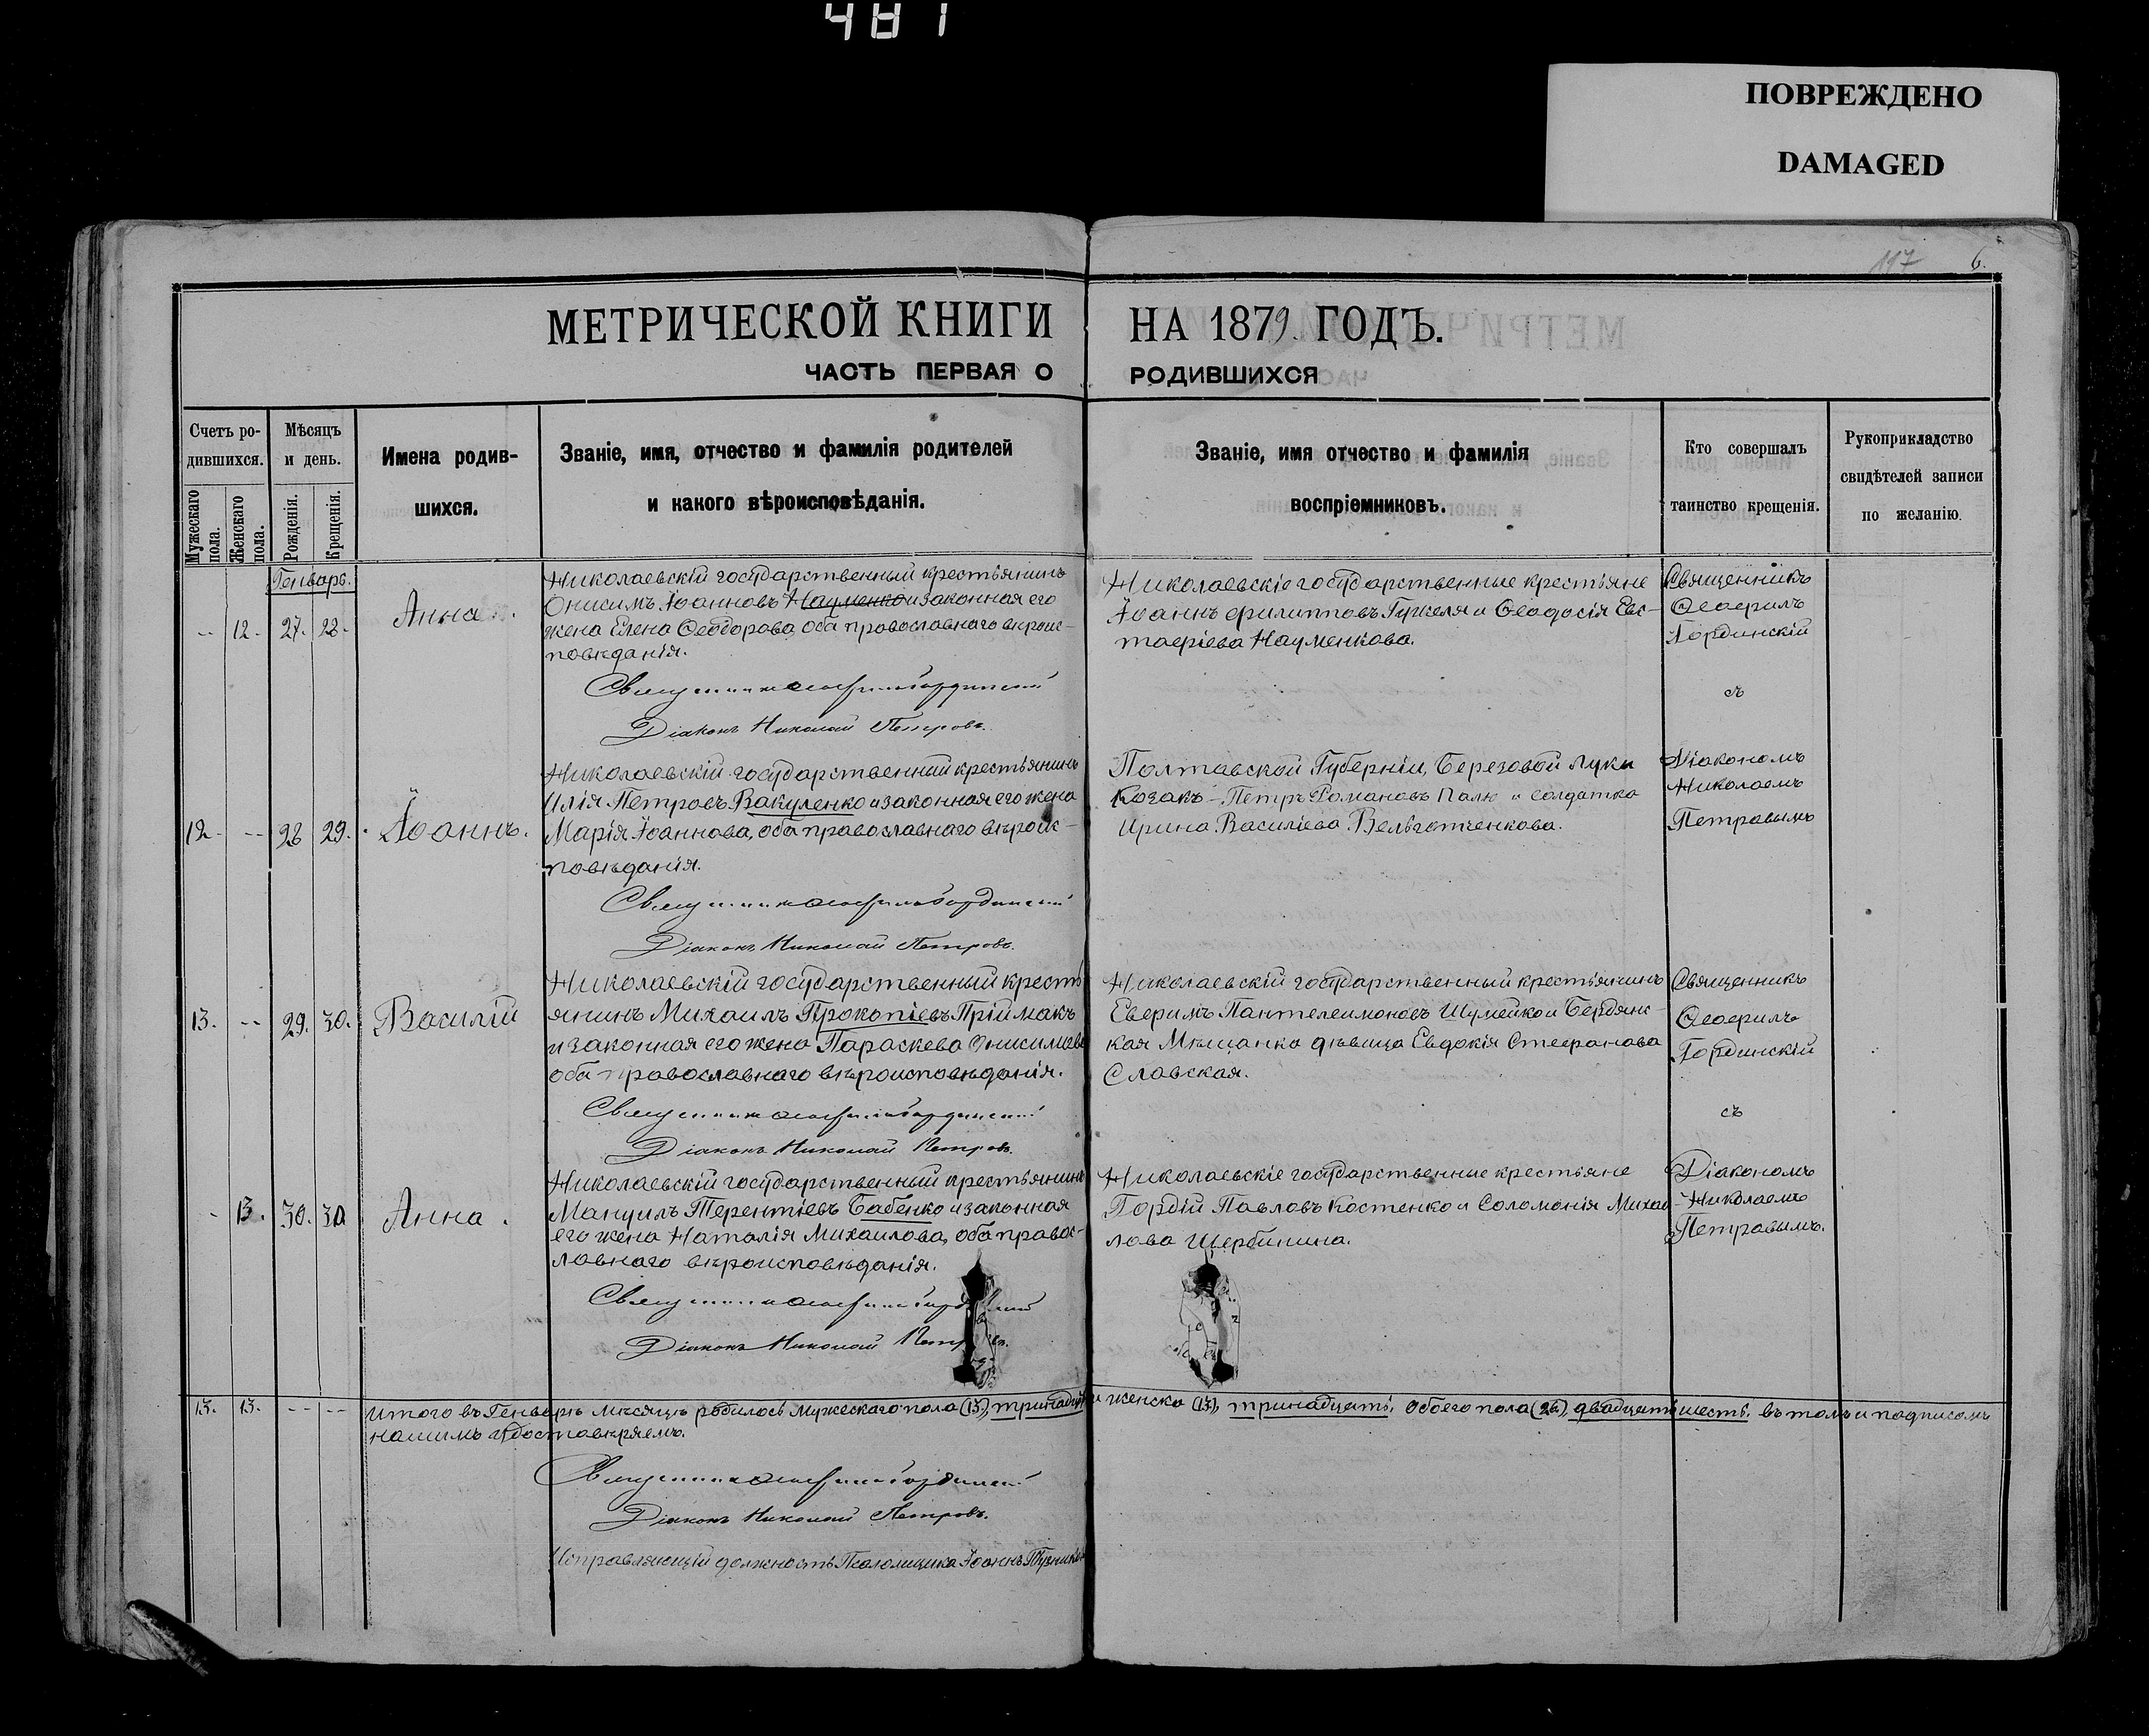 481
ПОВРЕЖДЕНО
DAMAGED
117 6.
МЕТРИЧЕСКОЙ КНИГИ НА 1879. ГОДЪ.
ЧАСТЬ ПЕРВАЯ О РОДИВШИХСЯ
Счетъ ро-
дившихся.
Мужескаго пола.
Женскаго пола.
Мѣсяцъ
и день.
Рожденія.
Крещенія.
Имена родив-
шихся.
Званіе, имя, отчество и фамилія родителей
и какого вѣроисповѣданія.
Званіе, имя отчество и фамилія
воспріемниковъ.
Кто совершалъ
таинство крещенія.
Рукоприкладство
свидѣтелей записи
по желанію.
Генварь.
-- 12. 27. 28. Анна.
Николаевскій государственный крестьянинъ
Онисимъ Іоанновъ Науменко и законная его
жена Елена Ѳеодорова, оба православнаго вѣроис-
повѣданія.
Священникъ Ѳеофилъ Гординскій
Діаконъ Николай Петровъ.
Николаевскіе государственные крестьяне
Іоаннъ Филипповъ Гужеля и Ѳеодосія Евс-
тафіева Науменкова.
Священникъ
Ѳеофилъ
Гординскій
съ
Діакономъ
Николаемъ
Петровымъ
12. -- 28 29. Іоаннъ.
Николаевскій государственный крестьянинъ
Илія Петровъ Вакуленко и законная его жена
Марія Іоаннова, оба православнаго вѣроис-
повѣданія.
Священникъ Ѳеофилъ Гординскій
Діаконъ Николай Петровъ.
Полтавской Губерніи, Березовой Луки
Козакъ Петръ Романовъ Палю и солдатка
Ирина Василіева
13. -- 29. 30. Василій
Николаевскій государственный кресть
янинъ Михаилъ Прокопіевъ Пріймакъ
и законная его жена Параскева Онисимова
оба православнаго вѣроисповѣданія.
Священникъ Ѳеофилъ Гординскій
Діаконъ Николай Петровъ.
Николаевскій государственный крестьянинъ
Евфимъ Пантелеимоновъ Шумейко и Бердянс-
кая Мѣщанка дѣвица Евдокія Стефанова
Славская.
Священникъ
Ѳеофилъ
Гординскій
съ
Діакономъ
Николаемъ
Петровымъ.
- 13. 30. 30 Анна.
Николаевскій государственный крестьянинъ
Мануилъ Терентіевъ Бабенко и законная
его жена Наталія Михаилова, оба правос-
лавнаго вѣроисповѣданія.
Священникъ Ѳеофилъ Гординскій
Діаконъ Николай Петровъ.
Николаевскіе государственные крестьяне
Гордій Павловъ Костенко и Соломонія Михаи-
лова Щербинина.
13. 13. -- -- Итого въ Генварѣ мѣсяцѣ родилось мужескаго пола (13), тринадцать и женска (13), тринадцать. Обоего пола (26), двадцать шесть. въ томъ и подписомъ
нашимъ удостовѣряемъ.
Священникъ Ѳеофилъ Гординскій
Діаконъ Николай Петровъ.
Исправляющій должность Псаломщика Іоаннъ